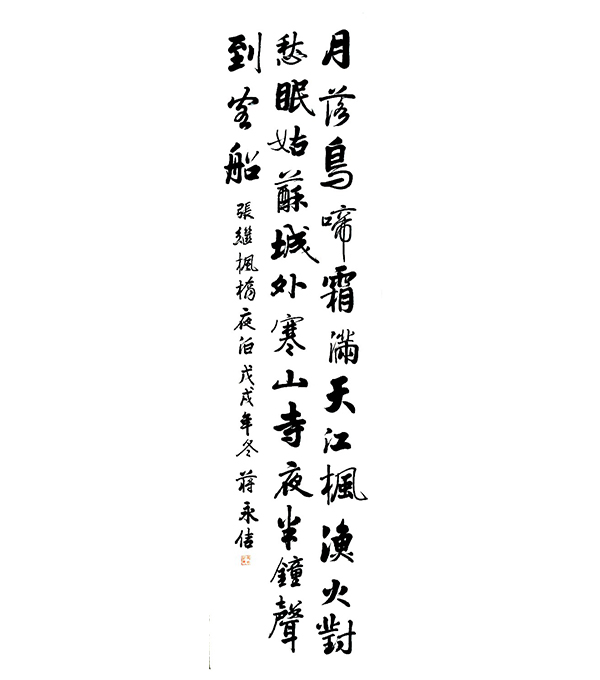 月落烏啼霜滿天江楓漁火對
愁眠姑蘇城外寒山寺夜半鐘聲
到客船
張繼楓橋夜泊戊戌年冬蔣永佶